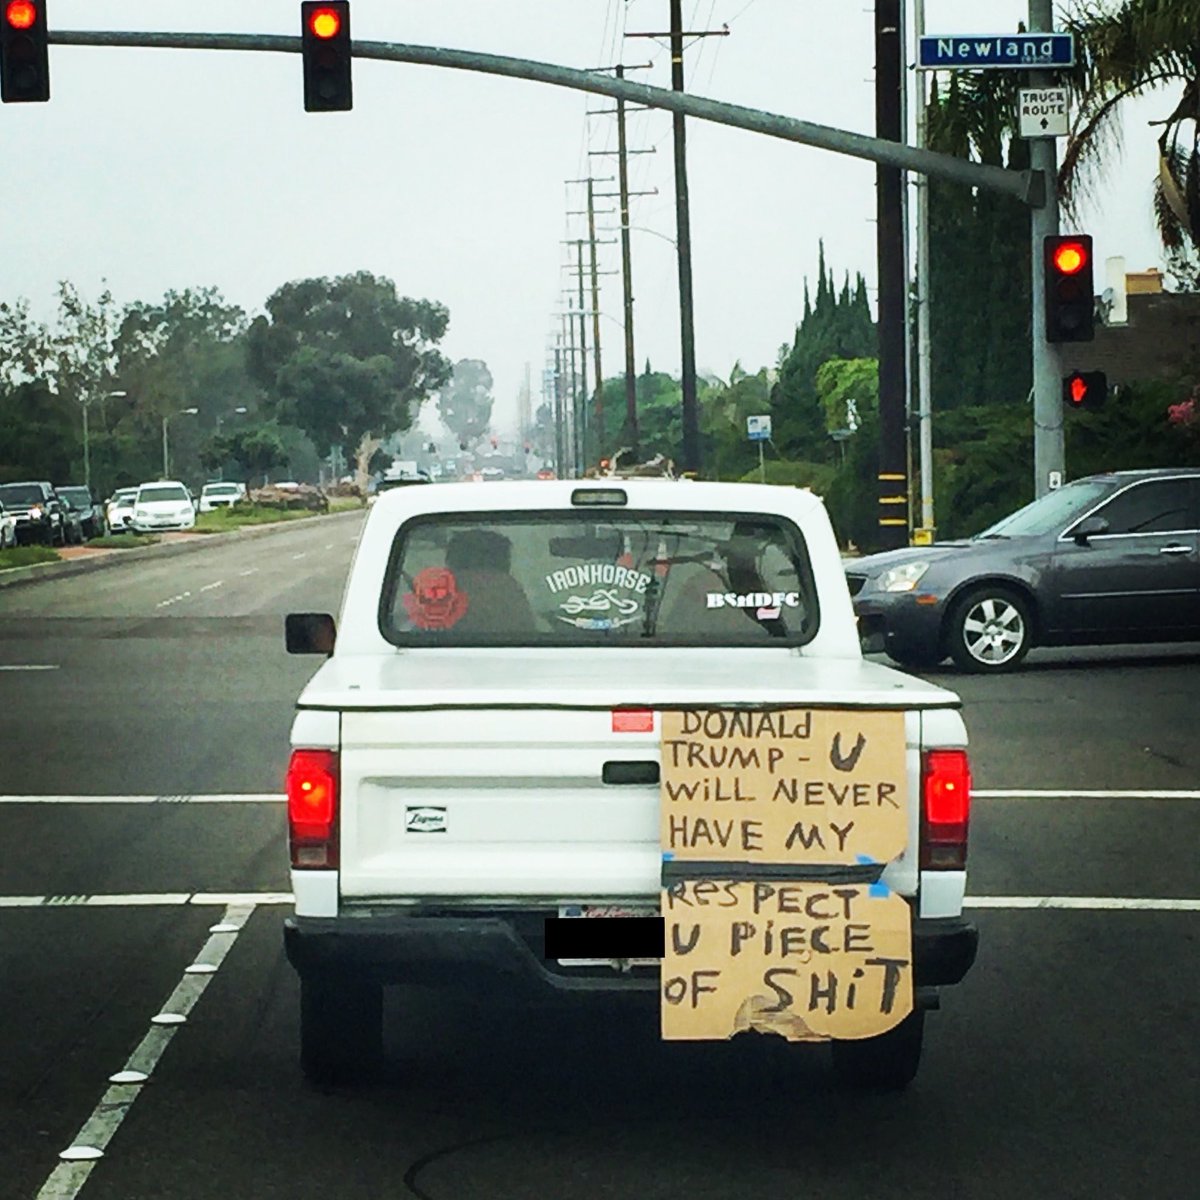 Newland
TRUCK
ROUTE
IRONHORSE
BSHDFC
DONALd
TRUMP - U
WiLL NEVER
HAVE MY
ReSPECT
U PiECE
OF SHiT